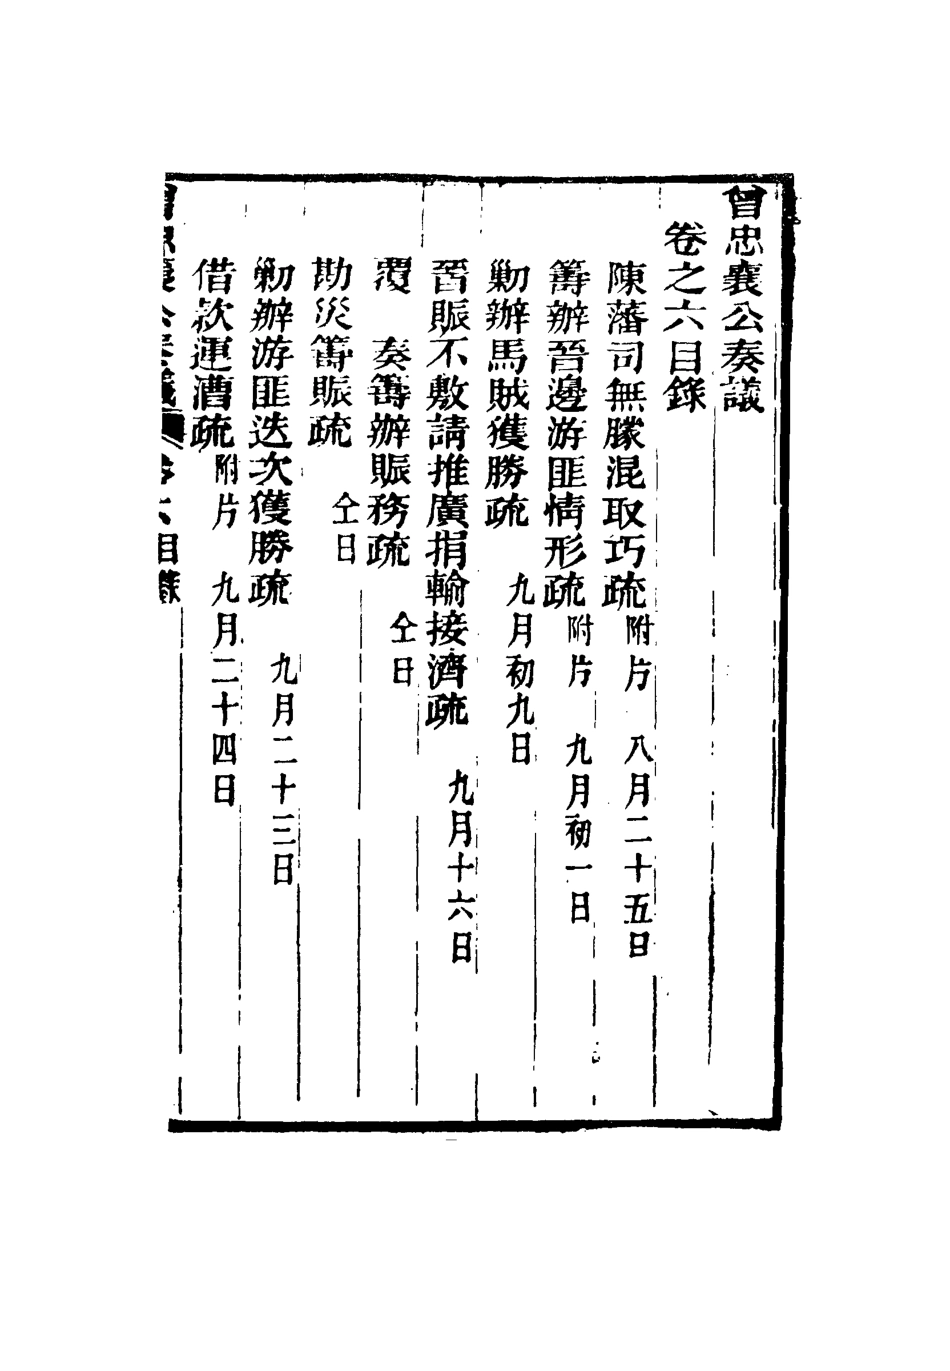 曾忠襄公奏議
卷之六目錄
陳藩司無朦混取巧疏附片 八月二十五日
籌辦晉邊游匪情形疏附片 九月初一日
勦辦馬賊獲勝疏 九月初九日
晉賑不敷請推廣捐輸接濟疏 九月十六日
覆 奏籌辦賑務疏 仝日
勘災籌賑疏 仝日
勦辦游匪迭次獲勝疏 九月二十三日
借款運漕疏附片 九月二十四日
曾忠襄公奏議 卷六目錄